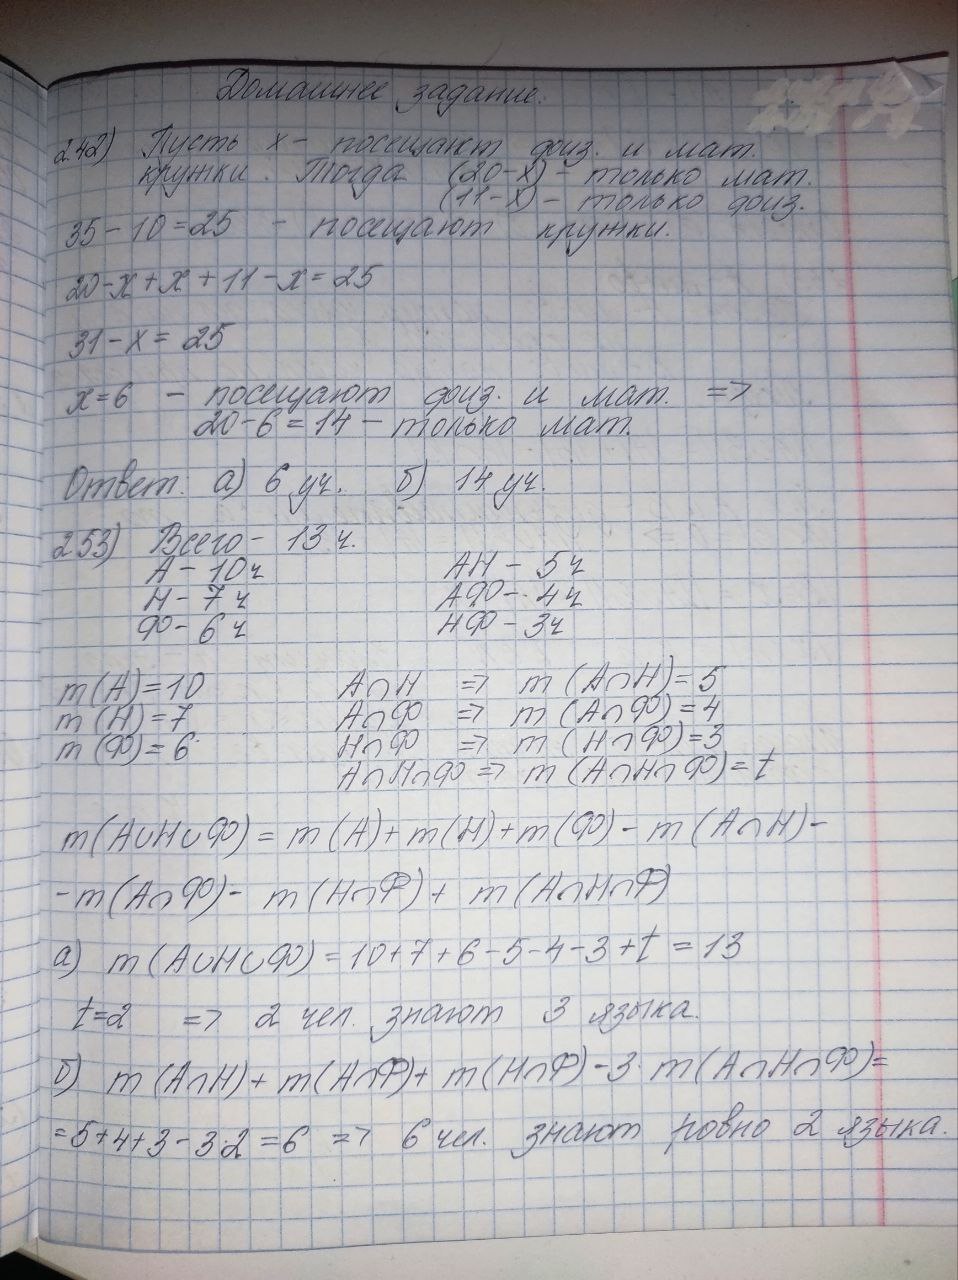 Домашнее задание.
242) Пусть х - посещают физ. и мат.
кружки. Тогда (20-х) - только мат.
(11-х) - только физ.
35-10=25 - посещают кружки.
20-х+х+11-х=25
31-х=25
х=6 - посещают физ. и мат. =>
20-6=14 - только мат.
Ответ: а) 6 уч. б) 14 уч.
253) Всего - 13 ч.
А - 10ч АН - 5ч
Н - 7ч АФ - 4ч
Ф - 6ч НФ - 3ч
m(А)=10 А∩Н => m(А∩Н)=5
m(Н)=7 А∩Ф => m(А∩Ф)=4
m(Ф)=6 Н∩Ф => m(Н∩Ф)=3
А∩Н∩Ф => m(А∩Н∩Ф)=t
m(А∪Н∪Ф)=m(А)+m(Н)+m(Ф)-m(А∩Н)-
-m(А∩Ф)-m(Н∩Ф)+m(А∩Н∩Ф)
а) m(А∪Н∪Ф)=10+7+6-5-4-3+t=13
t=2 => 2 чел. знают 3 языка.
б) m(А∩Н)+m(А∩Ф)+m(Н∩Ф)-3·m(А∩Н∩Ф)=
=5+4+3-3·2=6 => 6 чел. знают ровно 2 языка.